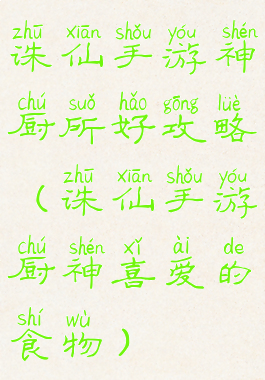 zhū xiān shǒu yóu shén
诛仙手游神
chú suǒ hǎo gōng lüè
厨所好攻略
zhū xiān shǒu yóu
（诛仙手游
chú shén xǐ ài de
厨神喜爱的
shí wù
食物）